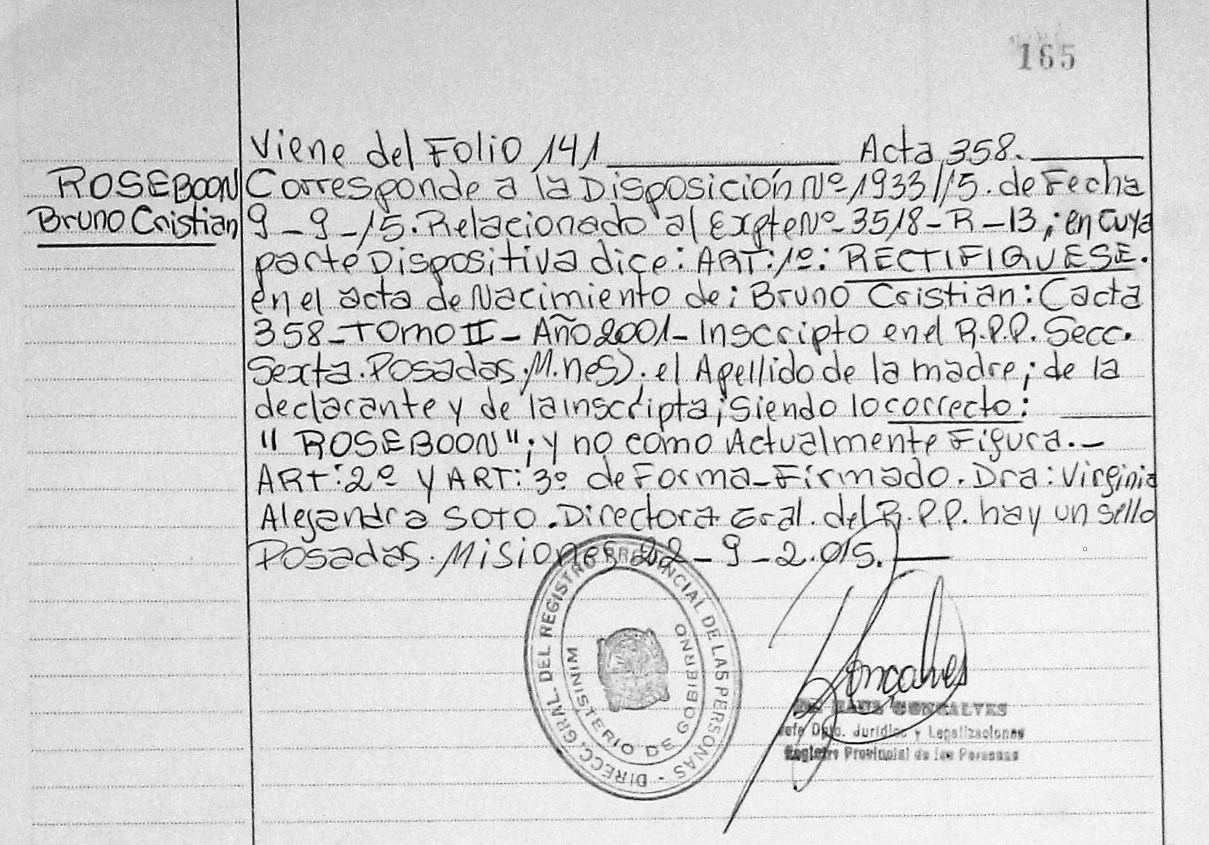 165
Viene del Folio 141 ____ Acta 358. ____
ROSEBOON
Bruno Cristian
Corresponde a la Disposición Nº 1933/15. de Fecha
9-9-15. Relacionado al Expte Nº 3518-R-13; en cuya
parte Dispositiva dice: ART: 1º: RECTIFIQUESE.
en el acta de Nacimiento de: Bruno Cristian: (acta
358-Tomo II- Año 2001- Inscripto en el R.P.P. Secc.
Sexta. Posadas. M.nes). el Apellido de la madre; de la
declarante y de la inscripta; siendo lo correcto: ____
"ROSEBOON"; y no como Actualmente Figura.-
ART: 2º y ART: 3º de Forma-Firmado. Dra: Virginia
Alejandra SOTO. Directora Gral. del R.P.P. hay un sello
Posadas. Misiones 22-9-2.015. __
DIRECC. GRAL. DEL REGISTRO PROVINCIAL DE LAS PERSONAS
MINISTERIO DE GOBIERNO
Goncalves
GONCALVES
Jefe Dpto. Jurídico y Legalizaciones
Registro Provincial de las Personas